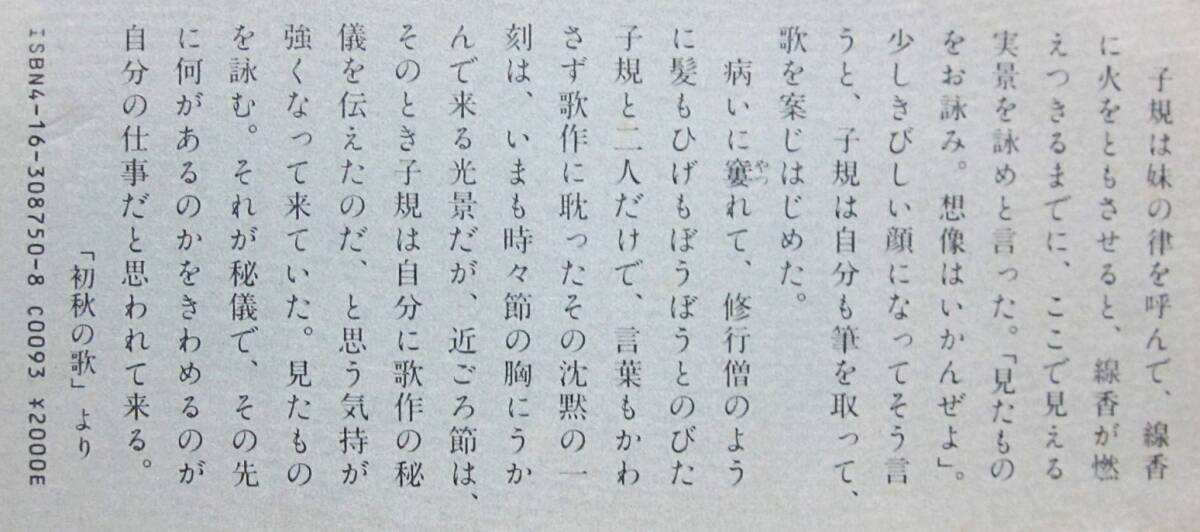 子規は妹の律を呼んで、線香
に火をともさせると、線香が燃
えつきるまでに、ここで見える
実景を詠めと言った。「見たもの
をお詠み。想像はいかんぜよ」。
少しきびしい顔になってそう言
うと、子規は自分も筆を取って、
歌を案じはじめた。
病いに窶れて、修行僧のよう
やつ
に髪もひげもぼうぼうとのびた
子規と二人だけで、言葉もかわ
さず歌作に耽ったその沈黙の一
刻は、いまも時々節の胸にうか
んで来る光景だが、近ごろ節は、
そのとき子規は自分に歌作の秘
儀を伝えたのだ、と思う気持が
強くなって来ていた。見たもの
を詠む。それが秘儀で、その先
に何があるのかをきわめるのが
自分の仕事だと思われて来る。
「初秋の歌」より
ISBN4-16-308750-8 C0093 ¥2000E